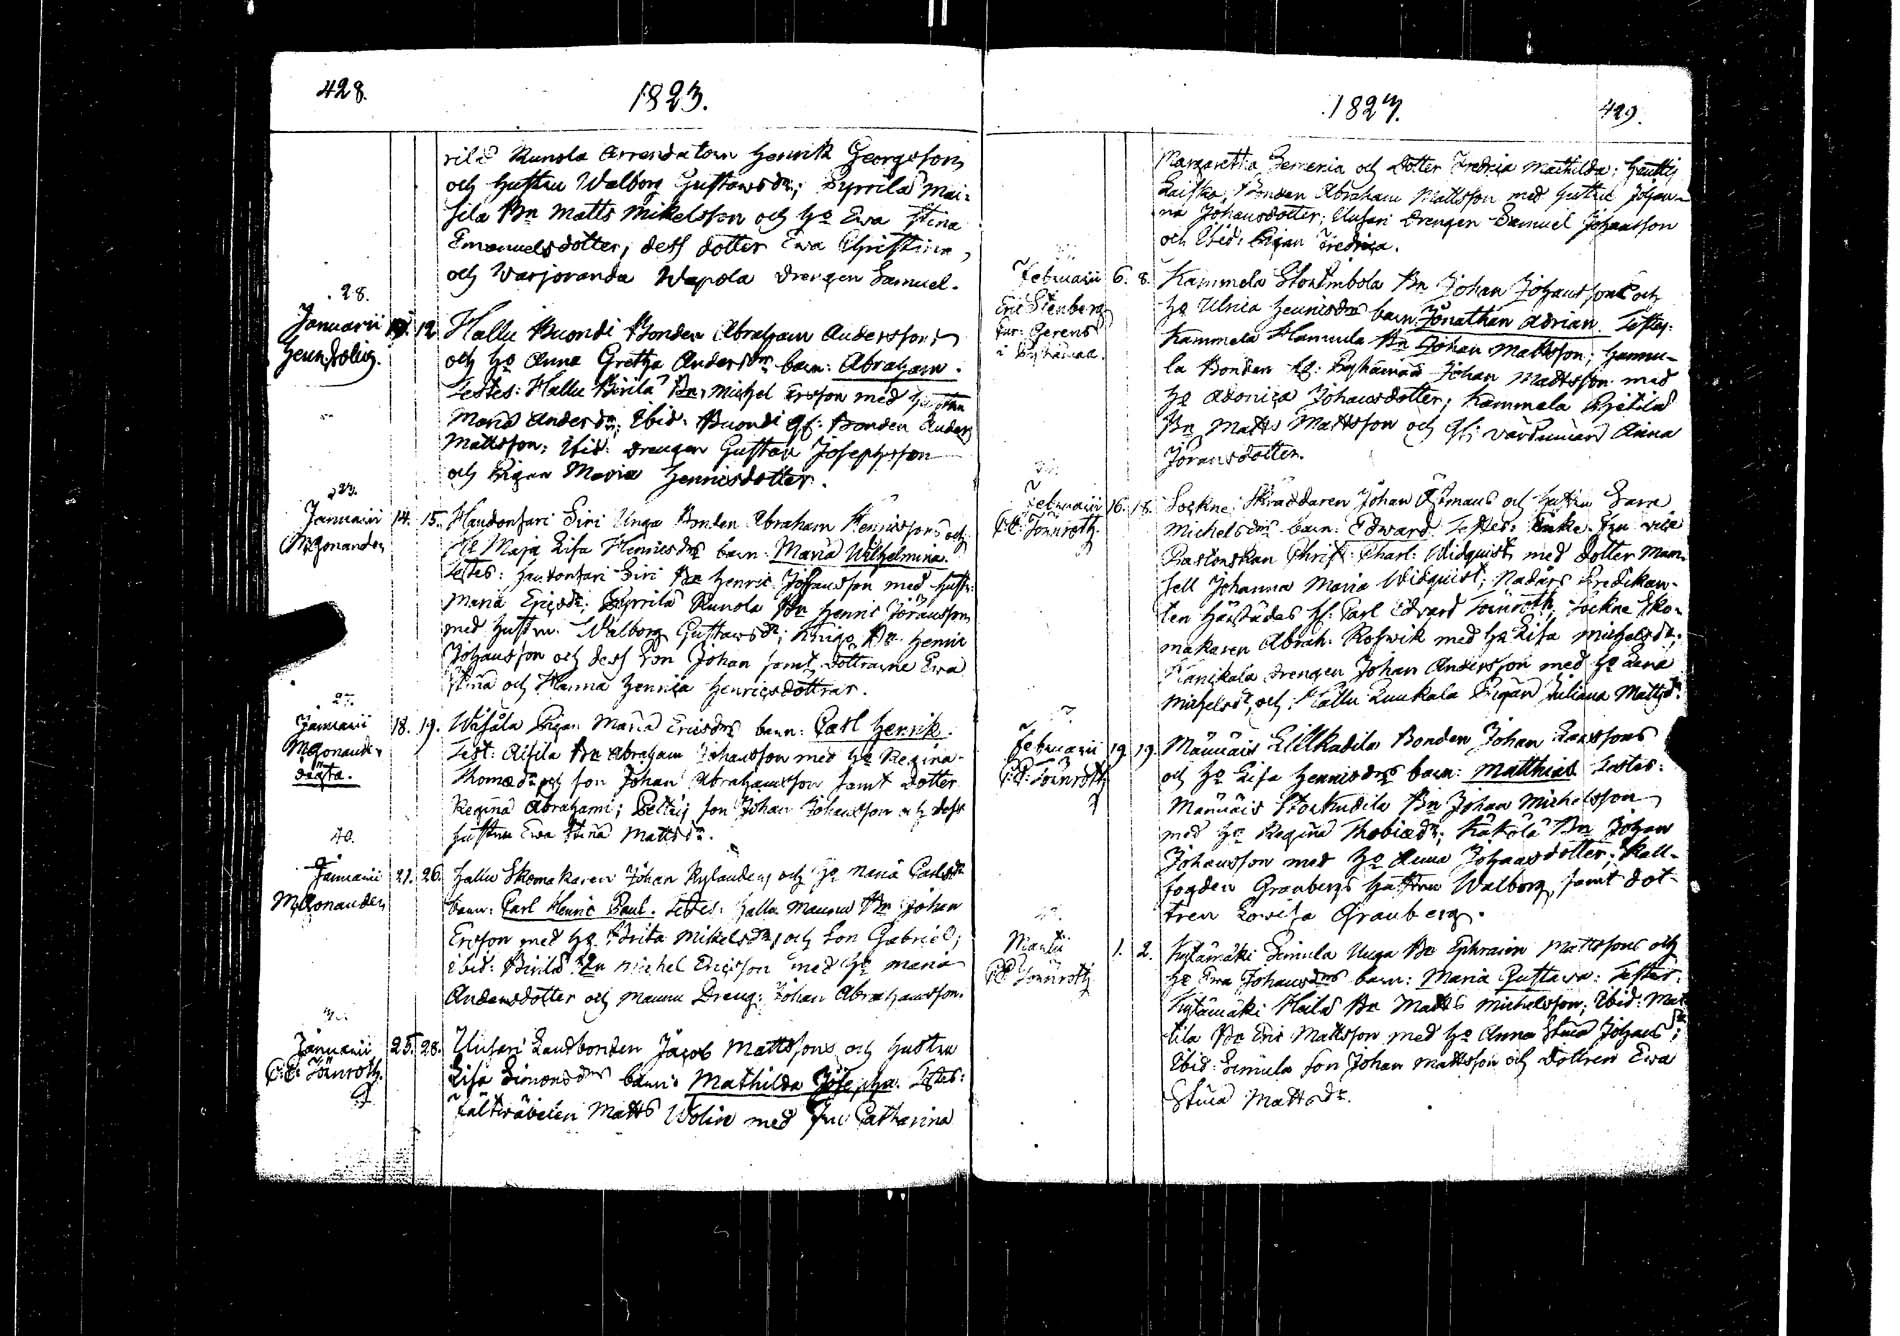 428.
1823.
rilä Kunola Arrendatorn Henrik Georgsson
och hustru Walborg Gustawsdr; Pyrrilä Mai-
sila Bn Matts Mikelsson och Ho Ewa Stina
Emanuelsdotter, dess dotter Ewa Christina,
och Warjoranda Wapola drengen Samuel.
28.
Januarii 12. Hallu Buondi Bonden Abraham Anderssons
och Ho Anna Gretha Andersdrs barn: Abraham.
Testes: Hallu Birilä Bn Michel Ersson med hustru
Maria Andersdr; Ibid: Buondi Gf: Bonden Anders
Mattsson; Ibid: drengen Gustav Josephsson
och Pigan Maria Henricsdotter.
23.
Januarii 14. 15. Haudonsari Siri Unga Bonden Abraham Henricssons och
Monander Ho Maja Lisa Henricsdrs barn: Maria Wilhelmina.
Testes: Haudonsari Siri Bn Henric Johansson med hustr:
Maria Ericsdr; Pyrrilä Kunola Bn Henric Göransson
med hustru Walborg Gustawsdr; Bn Henric
Johansson och dess Son Johan samt döttrarne Ewa
Stina och Hanna Henrica Henricsdöttrar.
27.
Januarii 18. 19. Pigan Maria Ericsdrs barn: Carl Henrik.
Monander Test: Bn Abraham Johansson med Ho Regina
oägta. Thomædr och son Johan Abrahamsson samt dotter
Regina Abrahami; son Johan Johansson och dess
hustru Ewa Stina Mattsdr.
40.
Januarii 21. 26. Hallu Skomakaren Johan Rylanders och Ho Maria Carlsdrs
Monander barn: Carl Henric Paul. Testes: Hallu Maunu Bn Johan
Ersson med Ho Brita Mikelsdr, och Son Gabriel;
ibid: Birilä Bn Michel Ericsson med Ho Maria
Andersdotter och Maunu Dreng: Johan Abrahamsson.
Januarii 25. 28. Uusari Landbonden Jacob Mattssons och hustru
C: E: Törnroth. Lisa Simonsdrs barn: Mathilda Josepha. Testes:
Fältwäbelen Matts Wolin med Fru Catharina
1823.
429.
Margaretha och Dotter Fredrica Mathilda;
Bonden Abraham Mattsson med hustru Johan-
na Johansdotter; Uusari Drengen Samuel Johansson
och Ibid: Pigan Fredrica.
Februarii 6. 8. Kammela Storimbola Bn Johan Johanssons och
Eric Stenberg Ho Ulrica Henricsdrs barn: Jonathan Adrian. Testes:
Kammela Hannula Bn Johan Mattsson; Hannu-
la Bonden Johan Mattsson med
Ho Adonica Johansdotter; Kammela
Bn Matts Mattsson och Anna
Göransdotter.
Februarii 16. 18. Sockne Skräddaren Johan Åkmans och hustru Sara
C: E: Törnroth. Michelsdrs barn: Edward. Testes: Enke Fru vice
Pastorskan Christ: Charl: Widquist, med dotter Mam-
sell Johanna Maria Widquist; Nådårs Predikan-
ten Härstädes Hr: Carl Edvard Törnroth; Sockne Sko-
makaren Abrah: Roswik med Ho Lisa Michelsdr;
drengen Johan Andersson med Ho Lena
Michelsdr, och Hallu Luukala Pigan Juliana Mattsdr.
Februarii 19. 19. Männäis Lillkadila Bonden Johan Larssons
C: E: Törnroth och Ho Lisa Henricsdrs barn: Matthias. Testes:
Männäis Storkudila Bn Johan Michelsson
med Ho Regina Thobiædr; Bn Johan
Johansson med Ho Anna Johansdotter; Skall-
fogden Granbergs hustru Walborg, samt dot-
tren Lovisa Granberg.
Martii 1. 2. Kytämäki Simula Unga Bn Ephraim Mattssons och
C: E: Törnroth Ho Eva Johansdrs barn: Maria Gustava. Testes:
Kytämäki Heilä Bn Matts Michelsson; Ibid: Mat-
tila Bn Eric Mattsson med Ho Anna Stina Johansdr;
Ibid: Simula Son Johan Mattsson och dottren Ewa
Stina Mattsdr.